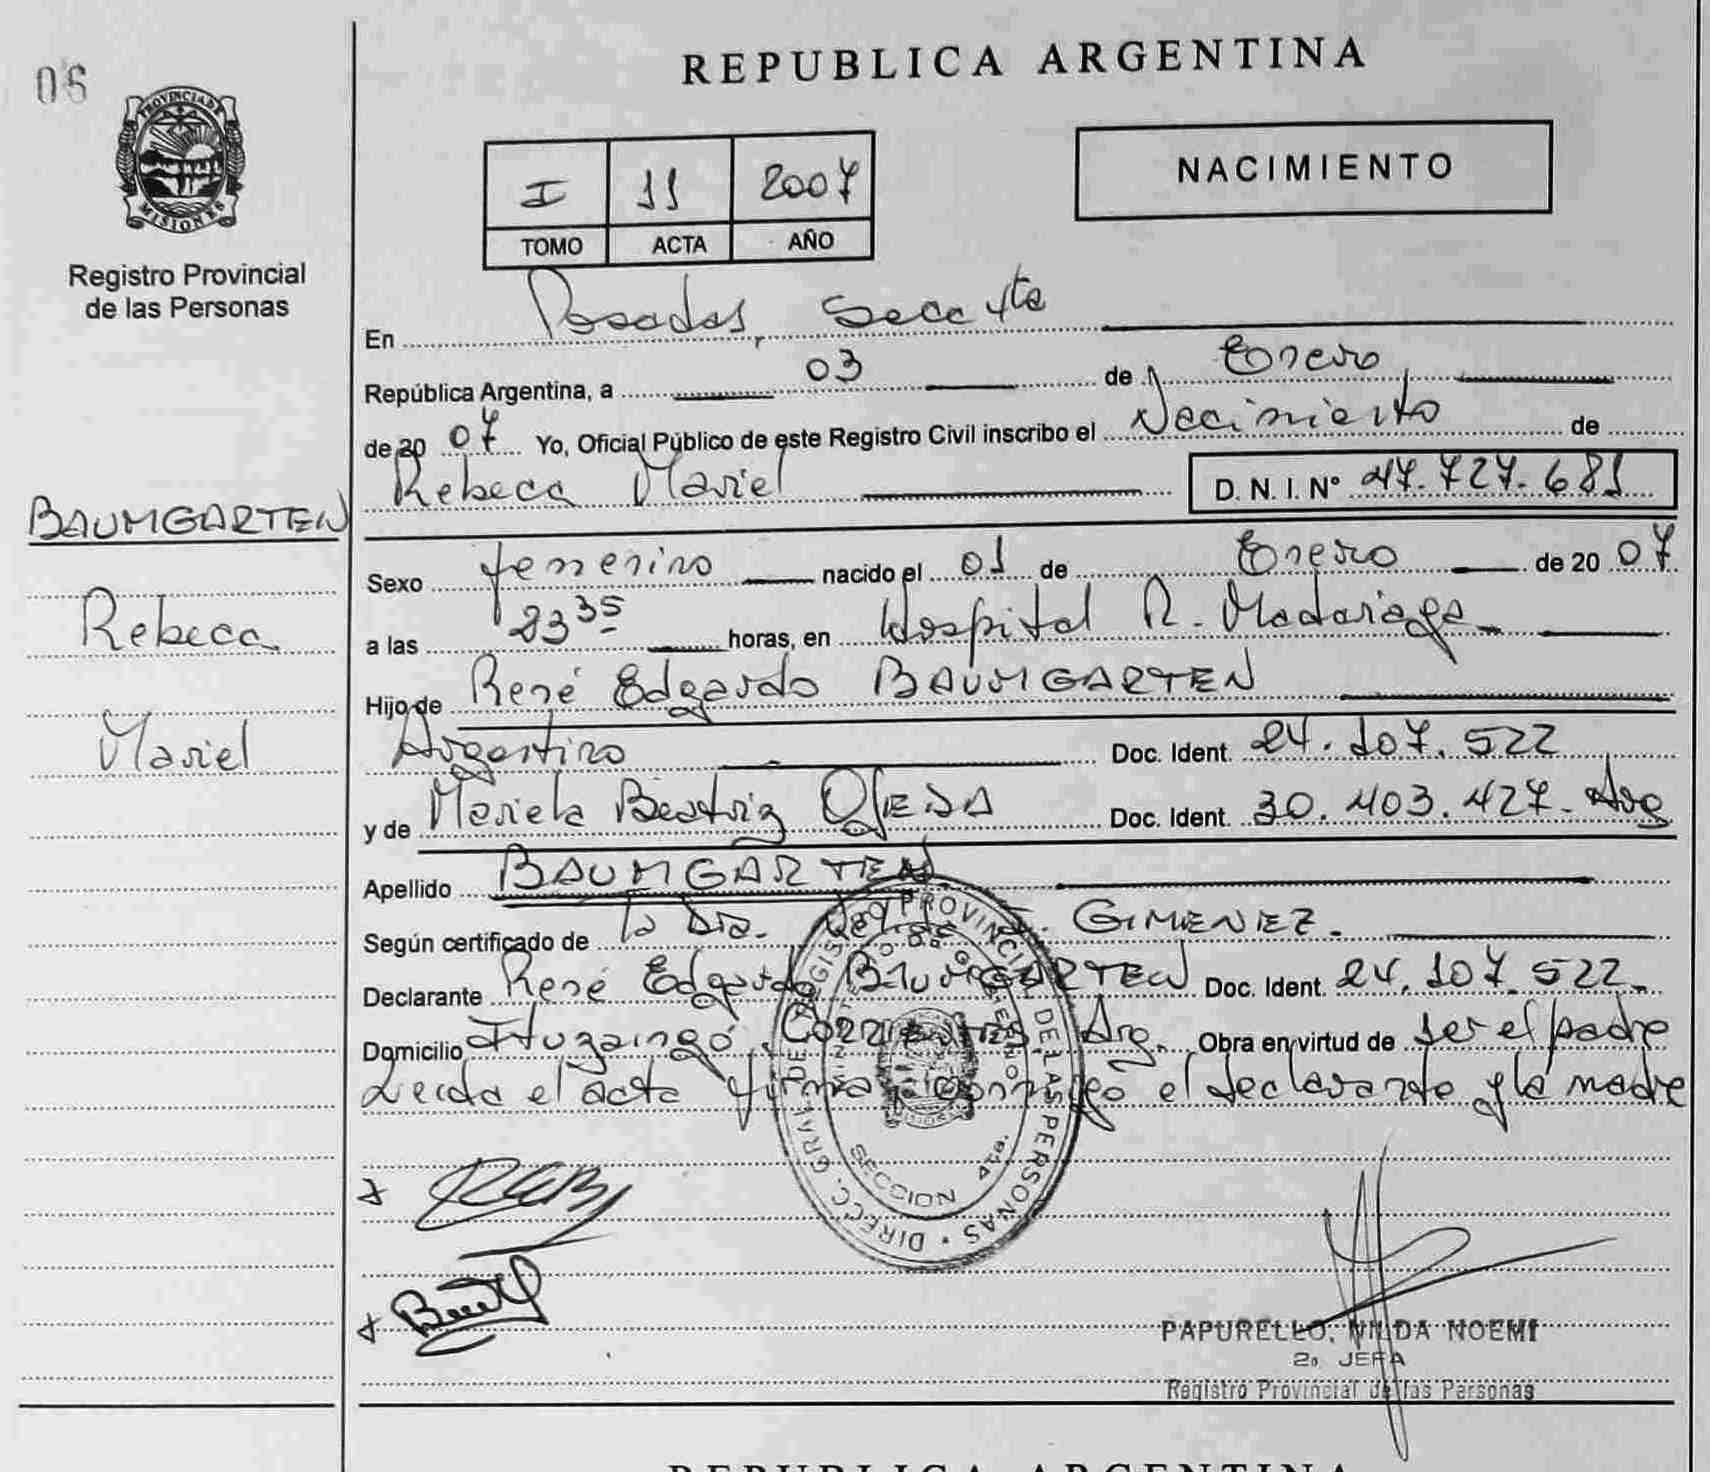 06
PROVINCIA DE
MISIONES
Registro Provincial
de las Personas
BAUMGARTEN
Rebeca
Mariel
REPUBLICA ARGENTINA
I 11 2007
TOMO ACTA AÑO
NACIMIENTO
En Posadas, Secc 4ta
República Argentina, a 03 de Enero
de 20 07 Yo, Oficial Público de este Registro Civil inscribo el Nacimiento de
Rebeca Mariel D. N. I. Nº 47.727.681
Sexo femenino nacido el 01 de Enero de 20 07
a las 23 35 horas, en Hospital R. Madariaga
Hijo de René Edgardo BAUMGARTEN
Argentino Doc. Ident. 24.107.522
y de Mariela Beatriz OJEDA Doc. Ident. 30.403.427. Arg
Apellido BAUMGARTEN
Según certificado de la Dra. GIMENEZ.
Declarante René Edgardo BAUMGARTEN Doc. Ident. 24.107.522.
Domicilio Ituzaingó, Corrientes, Arg. Obra en virtud de ser el padre
Leida el acta firma conmigo el declarante y la madre
DIRECC. GRAL. DE REGISTRO PROVINCIAL DE LAS PERSONAS
MINISTERIO DE GOBIERNO
SECCION 4ta.
PAPURELLO, NILDA NOEMI
2a JEFA
Registro Provincial de las Personas
REPUBLICA ARGENTINA